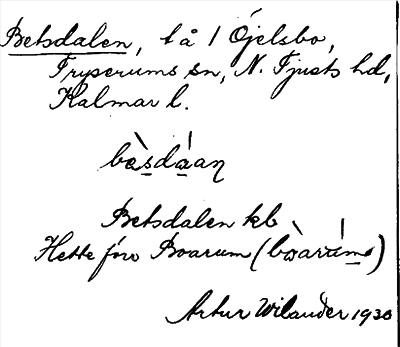 Betsdalen, t å 1 Öjelsbo,
Tryserums sn, N. Tjusts hd,
Kalmar l.
bàsdáan
Betsdalen kb
Hette förr Boarum (
Artur Wilander 1930